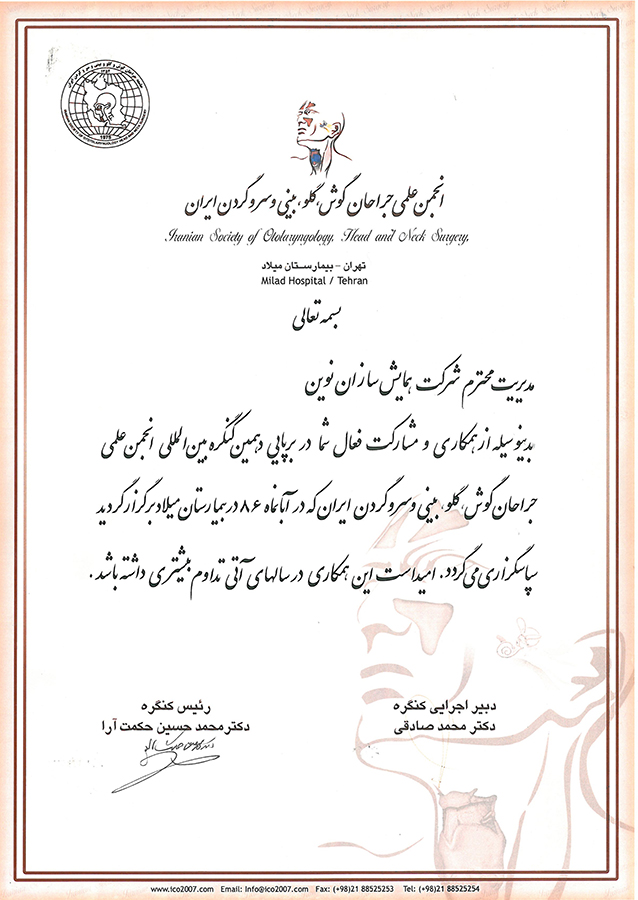 1975
انجمن علمی جراحان گوش، گلو، بینی و سر و گردن ایران
Iranian Society of Otolaryngology, Head and Neck Surgery,
تهران - بیمارستان میلاد
Milad Hospital / Tehran
بسمه تعالی
مدیریت محترم شرکت همایش سازان نوین
بدینوسیله از همکاری و مشارکت فعال شما در برپایی دهمین کنگره بین المللی انجمن علمی
جراحان گوش، گلو، بینی و سر و گردن ایران که در آبانماه ۸۶ در بیمارستان میلاد برگزار گردید
سپاسگزاری می گردد. امید است این همکاری در سالهای آتی تداوم بیشتری داشته باشد.
دبیر اجرایی کنگره
دکتر محمد صادقی
رئیس کنگره
دکتر محمد حسین حکمت آرا
www.ico2007.com Email: Info@ico2007.com Fax: (+98)21 88525253 Tel: (+98)21 88525254